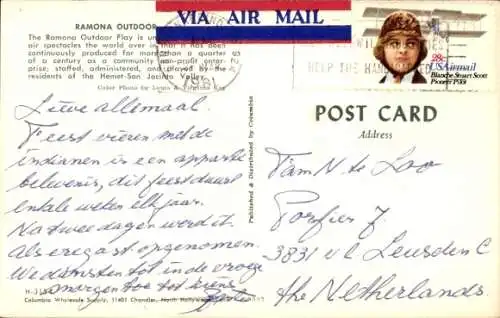 RAMONA OUTDOOR
The Ramona Outdoor Play is un
air spectacles the world over in that it has
continuously produced for more than a quarter
of a century as a community non-profit enter-
prise; staffed, administered, and played by the
residents of the Hemet-San Jacinto Valley.
Color Photo by
VIA AIR MAIL
HELP THE HANDICAPPED
28c
USAirmail
Blanche Stuart Scott
Pioneer Pilot
POST CARD
Address
Published & Distributed by Columbia
Lieve allemaal.
Feest vieren met de
indianen is een aparte
belevenis, dit feest duurt
enkele weken elk jaar.
Na twee dagen werd ik
als eregast opgenomen.
We dansten tot in de vroege
morgen toe tot
Fam N. te Loo
Porfier 7
3831 Leusden C
the Netherlands
Columbia Wholesale Supply, 11401 Chandler, North Hollywood